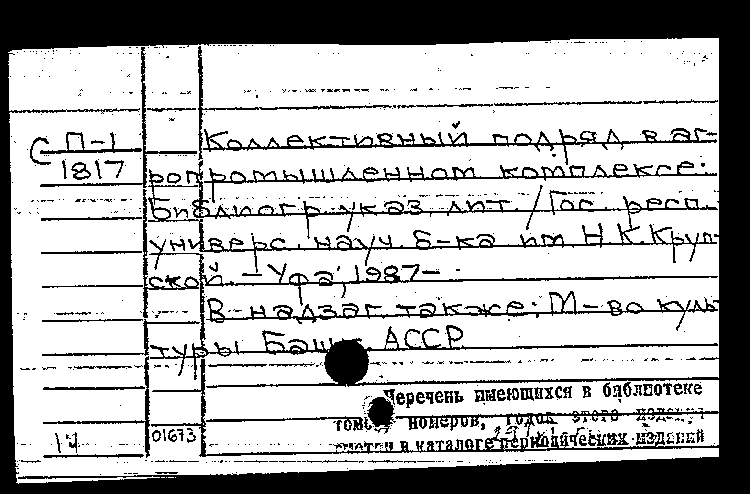 С П-1
1817
Коллективный подряд в аг-
ропромышленном комплексе:
Библиогр. указ. лит. / Гос. респ.
универс. науч. б-ка им. Н.К.Круп-
ской. - Уфа, 1987-
В надзаг. также: М-во куль
туры Башк. АССР
Перечень имеющихся в библиотеке
томов, номеров, годов этого издания
смотри в каталоге периодических изданий
17 01673